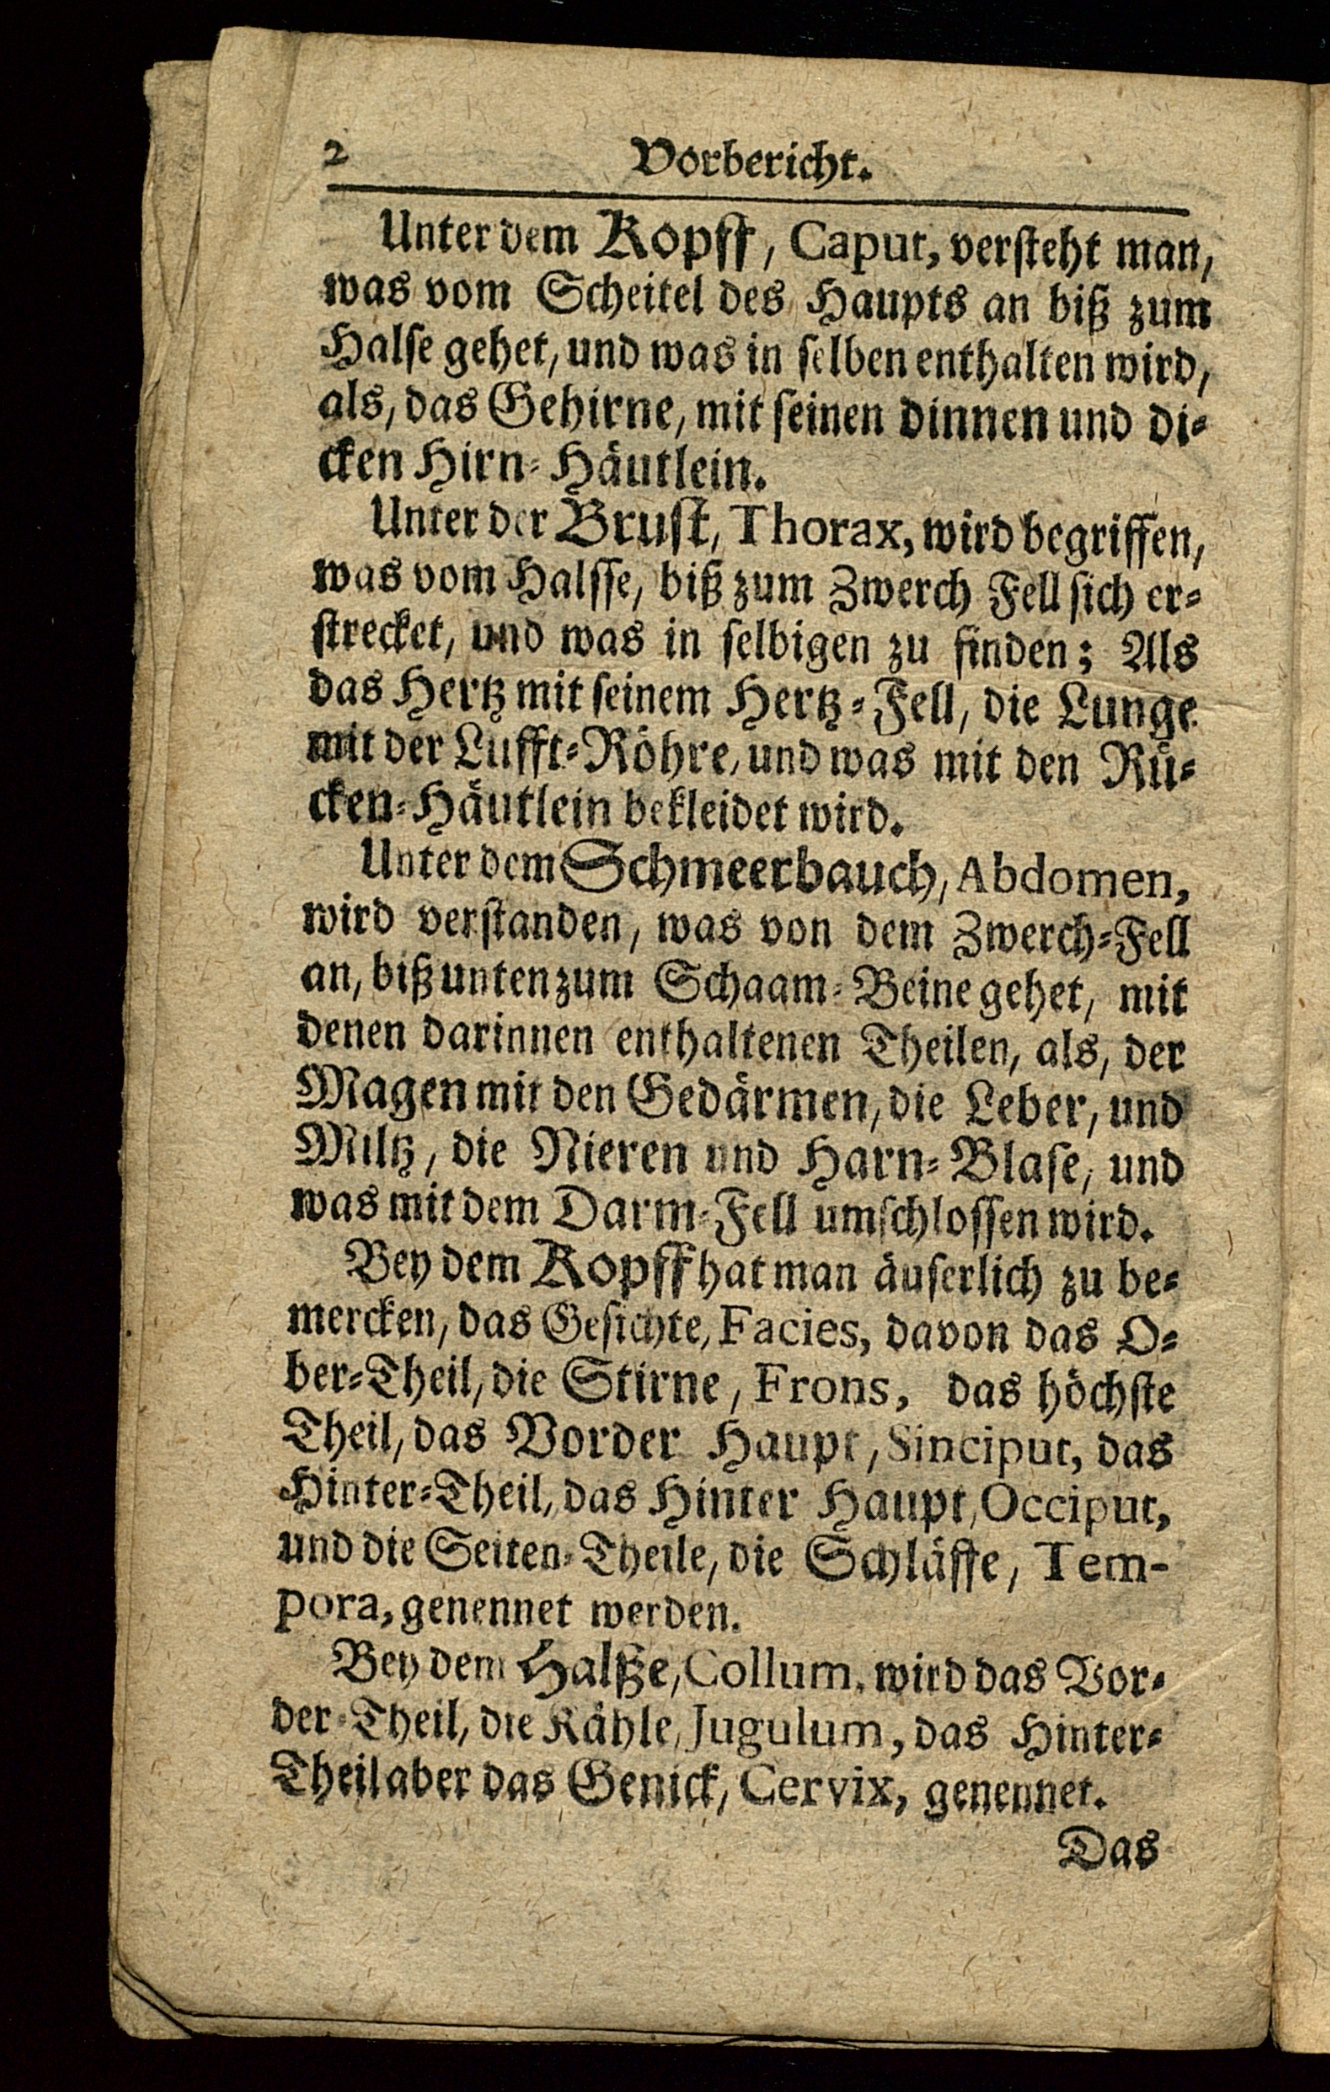 2 Vorbericht.
Unter dem Kopff, Caput, versteht man,
was vom Scheitel des Haupts an biß zum
Halse gehet, und was in selben enthalten wird,
als, das Gehirne, mit seinen dinnen und di-
cken Hirn-Häutlein.
Unter der Brust, Thorax, wird begriffen,
was vom Halsse, biß zum Zwerch Fell sich er-
strecket, und was in selbigen zu finden; Als
das Hertz mit seinem Hertz-Fell, die Lunge
mit der Lufft-Röhre, und was mit den Rü-
cken-Häutlein bekleidet wird.
Unter dem Schmeerbauch, Abdomen,
wird verstanden, was von dem Zwerch-Fell
an, biß unten zum Schaam-Beine gehet, mit
denen darinnen enthaltenen Theilen, als, der
Magen mit den Gedärmen, die Leber, und
Miltz, die Nieren und Harn-Blase, und
was mit dem Darm-Fell umschlossen wird.
Bey dem Kopff hat man äuserlich zu be-
mercken, das Gesichte, Facies, davon das O-
ber-Theil, die Stirne, Frons, das höchste
Theil, das Vorder Haupt, Sinciput, das
Hinter-Theil, das Hinter Haupt, Occiput,
und die Seiten-Theile, die Schläffe, Tem-
pora, genennet werden.
Bey dem Haltze, Collum, wird das Vor-
der-Theil, die Kähle, Jugulum, das Hinter-
Theil aber das Genick, Cervix, genennet.
Das